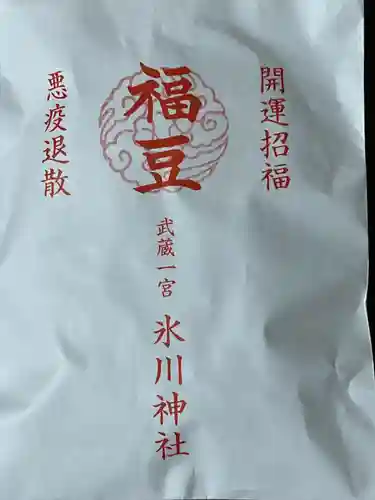 開運招福
福豆
悪疫退散
武蔵一宮
氷川神社